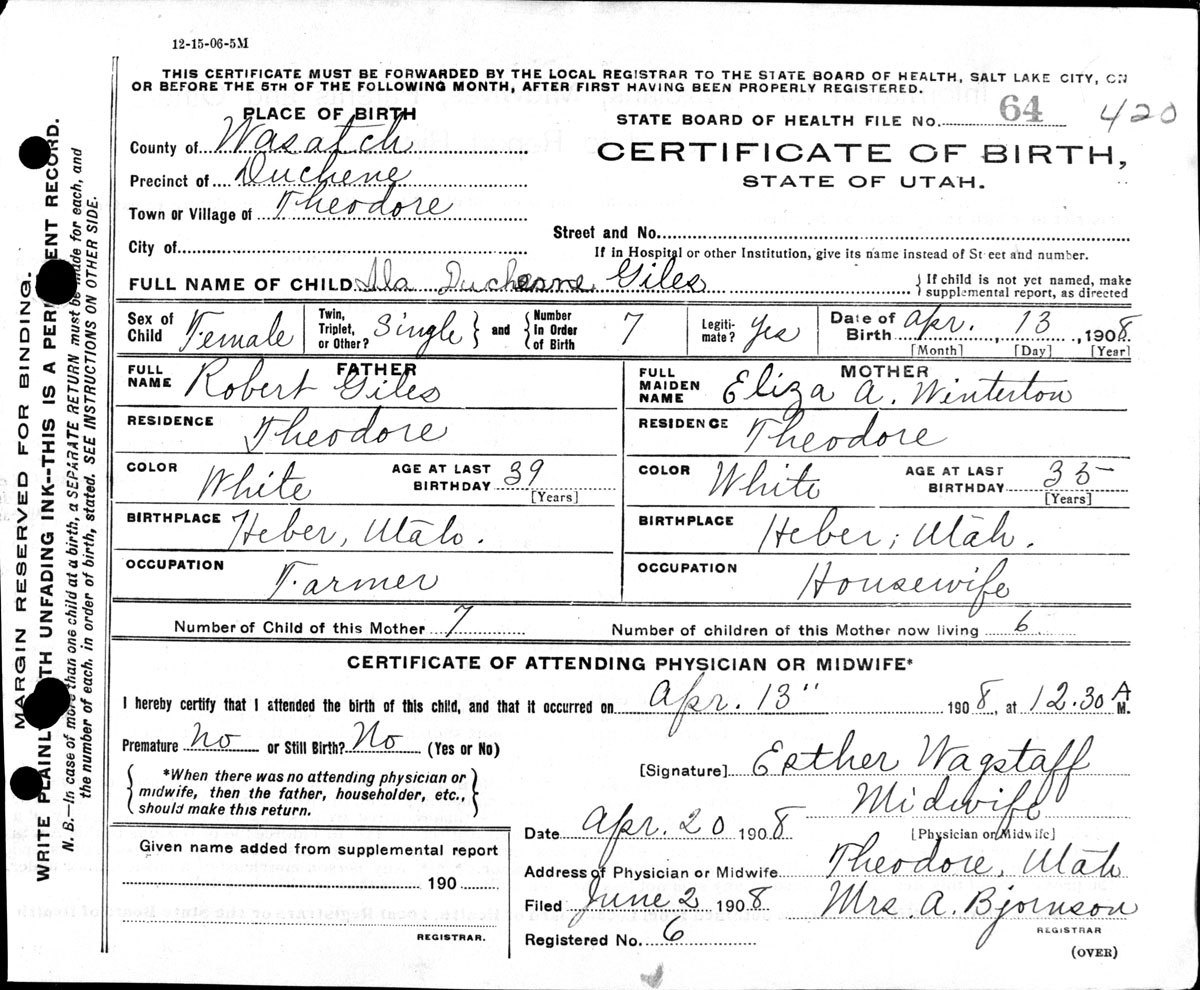 12-15-06-5M
THIS CERTIFICATE MUST BE FORWARDED BY THE LOCAL REGISTRAR TO THE STATE BOARD OF HEALTH, SALT LAKE CITY, ON
OR BEFORE THE 5TH OF THE FOLLOWING MONTH, AFTER FIRST HAVING BEEN PROPERLY REGISTERED.
PLACE OF BIRTH
STATE BOARD OF HEALTH FILE No. 64 420
County of Wasatch
CERTIFICATE OF BIRTH,
Precinct of Duchene
STATE OF UTAH.
Town or Village of Theodore
Street and No.
City of
If in Hospital or other Institution, give its name instead of Street and number.
FULL NAME OF CHILD Ila Duchesne Giles
If child is not yet named, make
supplemental report, as directed
Sex of Child Female
Twin, Triplet, or Other? Single and Number In Order of Birth 7
Legiti-mate? Yes
Date of Birth Apr. 13, 1908
[Month] [Day] [Year]
FATHER
FULL NAME Robert Giles
RESIDENCE Theodore
COLOR White AGE AT LAST BIRTHDAY 39
[Years]
BIRTHPLACE Heber, Utah.
OCCUPATION Farmer
MOTHER
FULL MAIDEN NAME Eliza A. Winterton
RESIDENCE Theodore
COLOR White AGE AT LAST BIRTHDAY 35
[Years]
BIRTHPLACE Heber, Utah.
OCCUPATION Housewife
Number of Child of this Mother 7 Number of children of this Mother now living 6
CERTIFICATE OF ATTENDING PHYSICIAN OR MIDWIFE*
I hereby certify that I attended the birth of this child, and that it occurred on Apr. 13" 1908, at 12.30 A M.
Premature No or Still Birth? No (Yes or No)
*When there was no attending physician or
midwife, then the father, householder, etc.,
should make this return.
[Signature] Esther Wagstaff
Midwife
[Physician or Midwife]
Date Apr. 20 1908
Given name added from supplemental report
190
REGISTRAR.
Address of Physician or Midwife Theodore, Utah
Filed June 2 1908 Mrs. A. Bjornson
REGISTRAR
Registered No. 6
(OVER)
MARGIN RESERVED FOR BINDING.
WRITE PLAINLY WITH UNFADING INK--THIS IS A PERMANENT RECORD.
N. B.—In case of more than one child at a birth, a SEPARATE RETURN must be made for each, and
the number of each, in order of birth, stated. SEE INSTRUCTIONS ON OTHER SIDE.